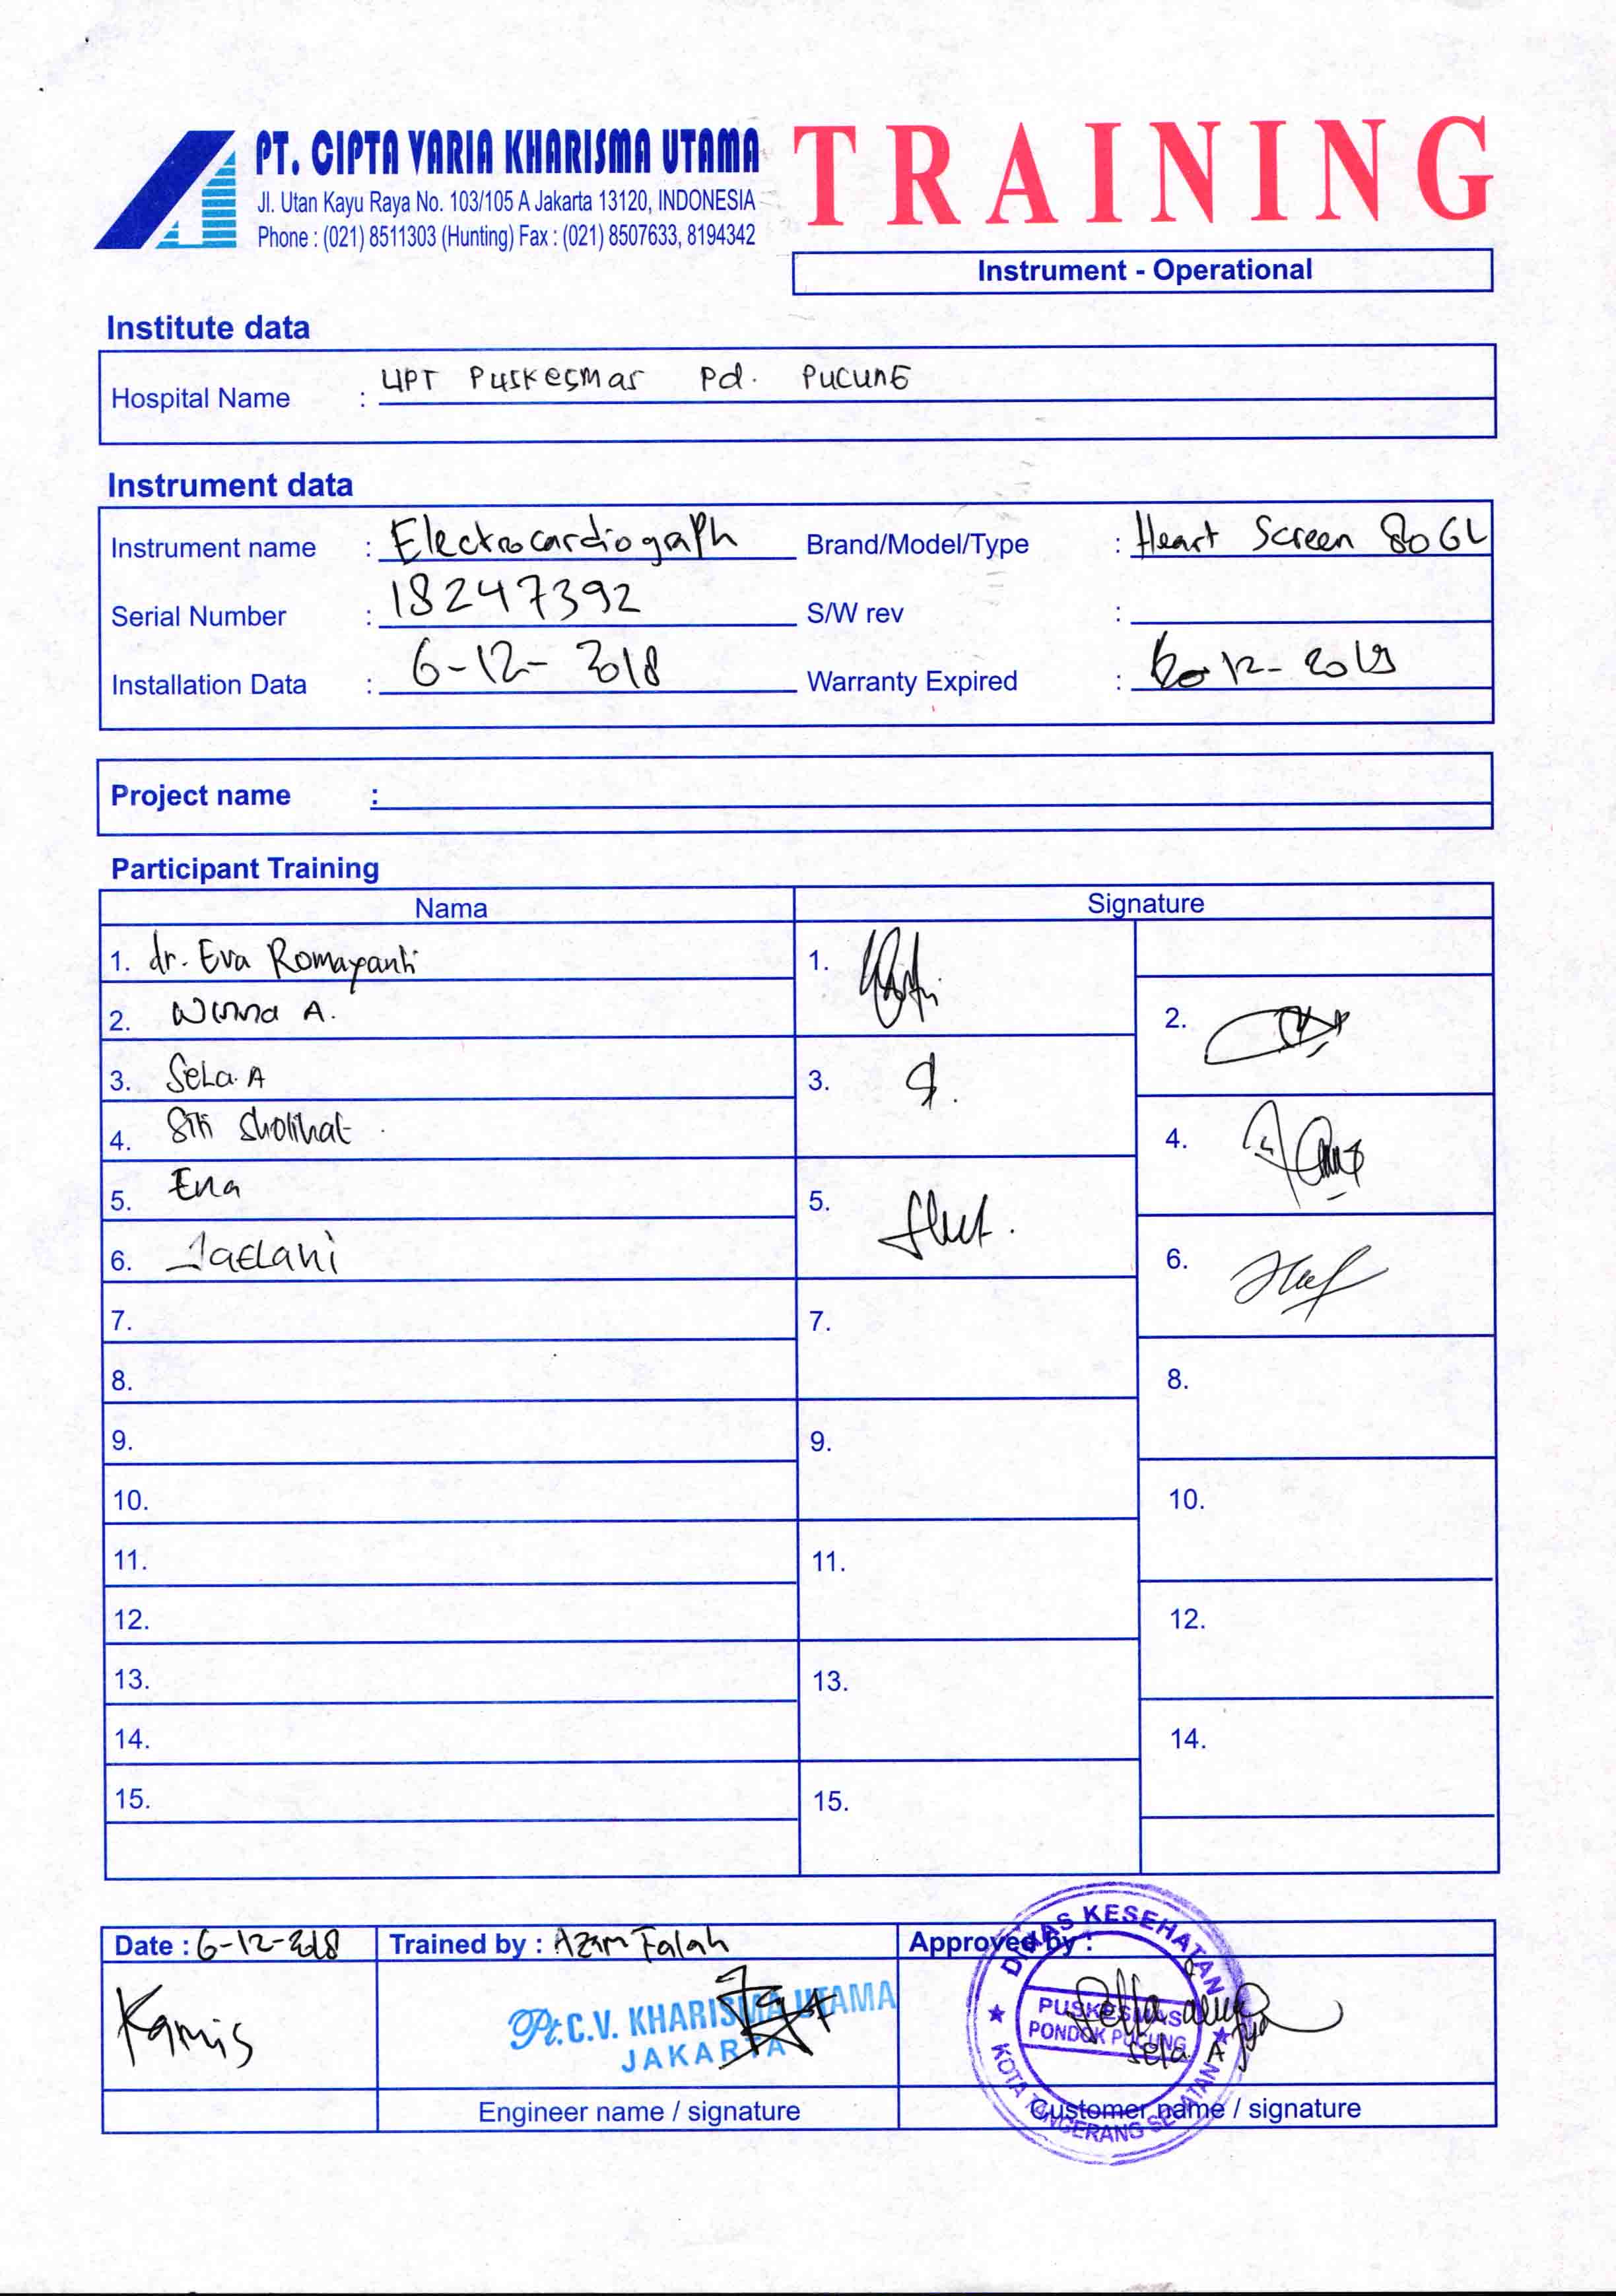 PT. CIPTA VARIA KHARISMA UTAMA
Jl. Utan Kayu Raya No. 103/105 A Jakarta 13120, INDONESIA
Phone : (021) 8511303 (Hunting) Fax : (021) 8507633, 8194342
TRAINING
Instrument - Operational
Institute data
Hospital Name : UPT Puskesmas Pd. Pucung
Instrument data
Instrument name : Electrocardiograph Brand/Model/Type : Heart Screen 80 GL
Serial Number : 18247392 S/W rev :
Installation Data : 6-12-2018 Warranty Expired : 12-2019
Project name :
Participant Training
Nama Signature
1. dr. Eva Romayanti 1.
2. Winna A. 2.
3. Sela. A 3.
4. Siti Sholihat 4.
5. Ena 5.
6. Jaelani 6.
7. 7.
8. 8.
9. 9.
10. 10.
11. 11.
12. 12.
13. 13.
14. 14.
15. 15.
Date : 6-12-2018 Trained by : Azam Falah Approved by :
Kamis
Pt. C.V. KHARISMA UTAMA
JAKARTA
DINAS KESEHATAN
PUSKESMAS
PONDOK PUCUNG
KOTA TANGERANG SELATAN
Sela A
Engineer name / signature Customer name / signature